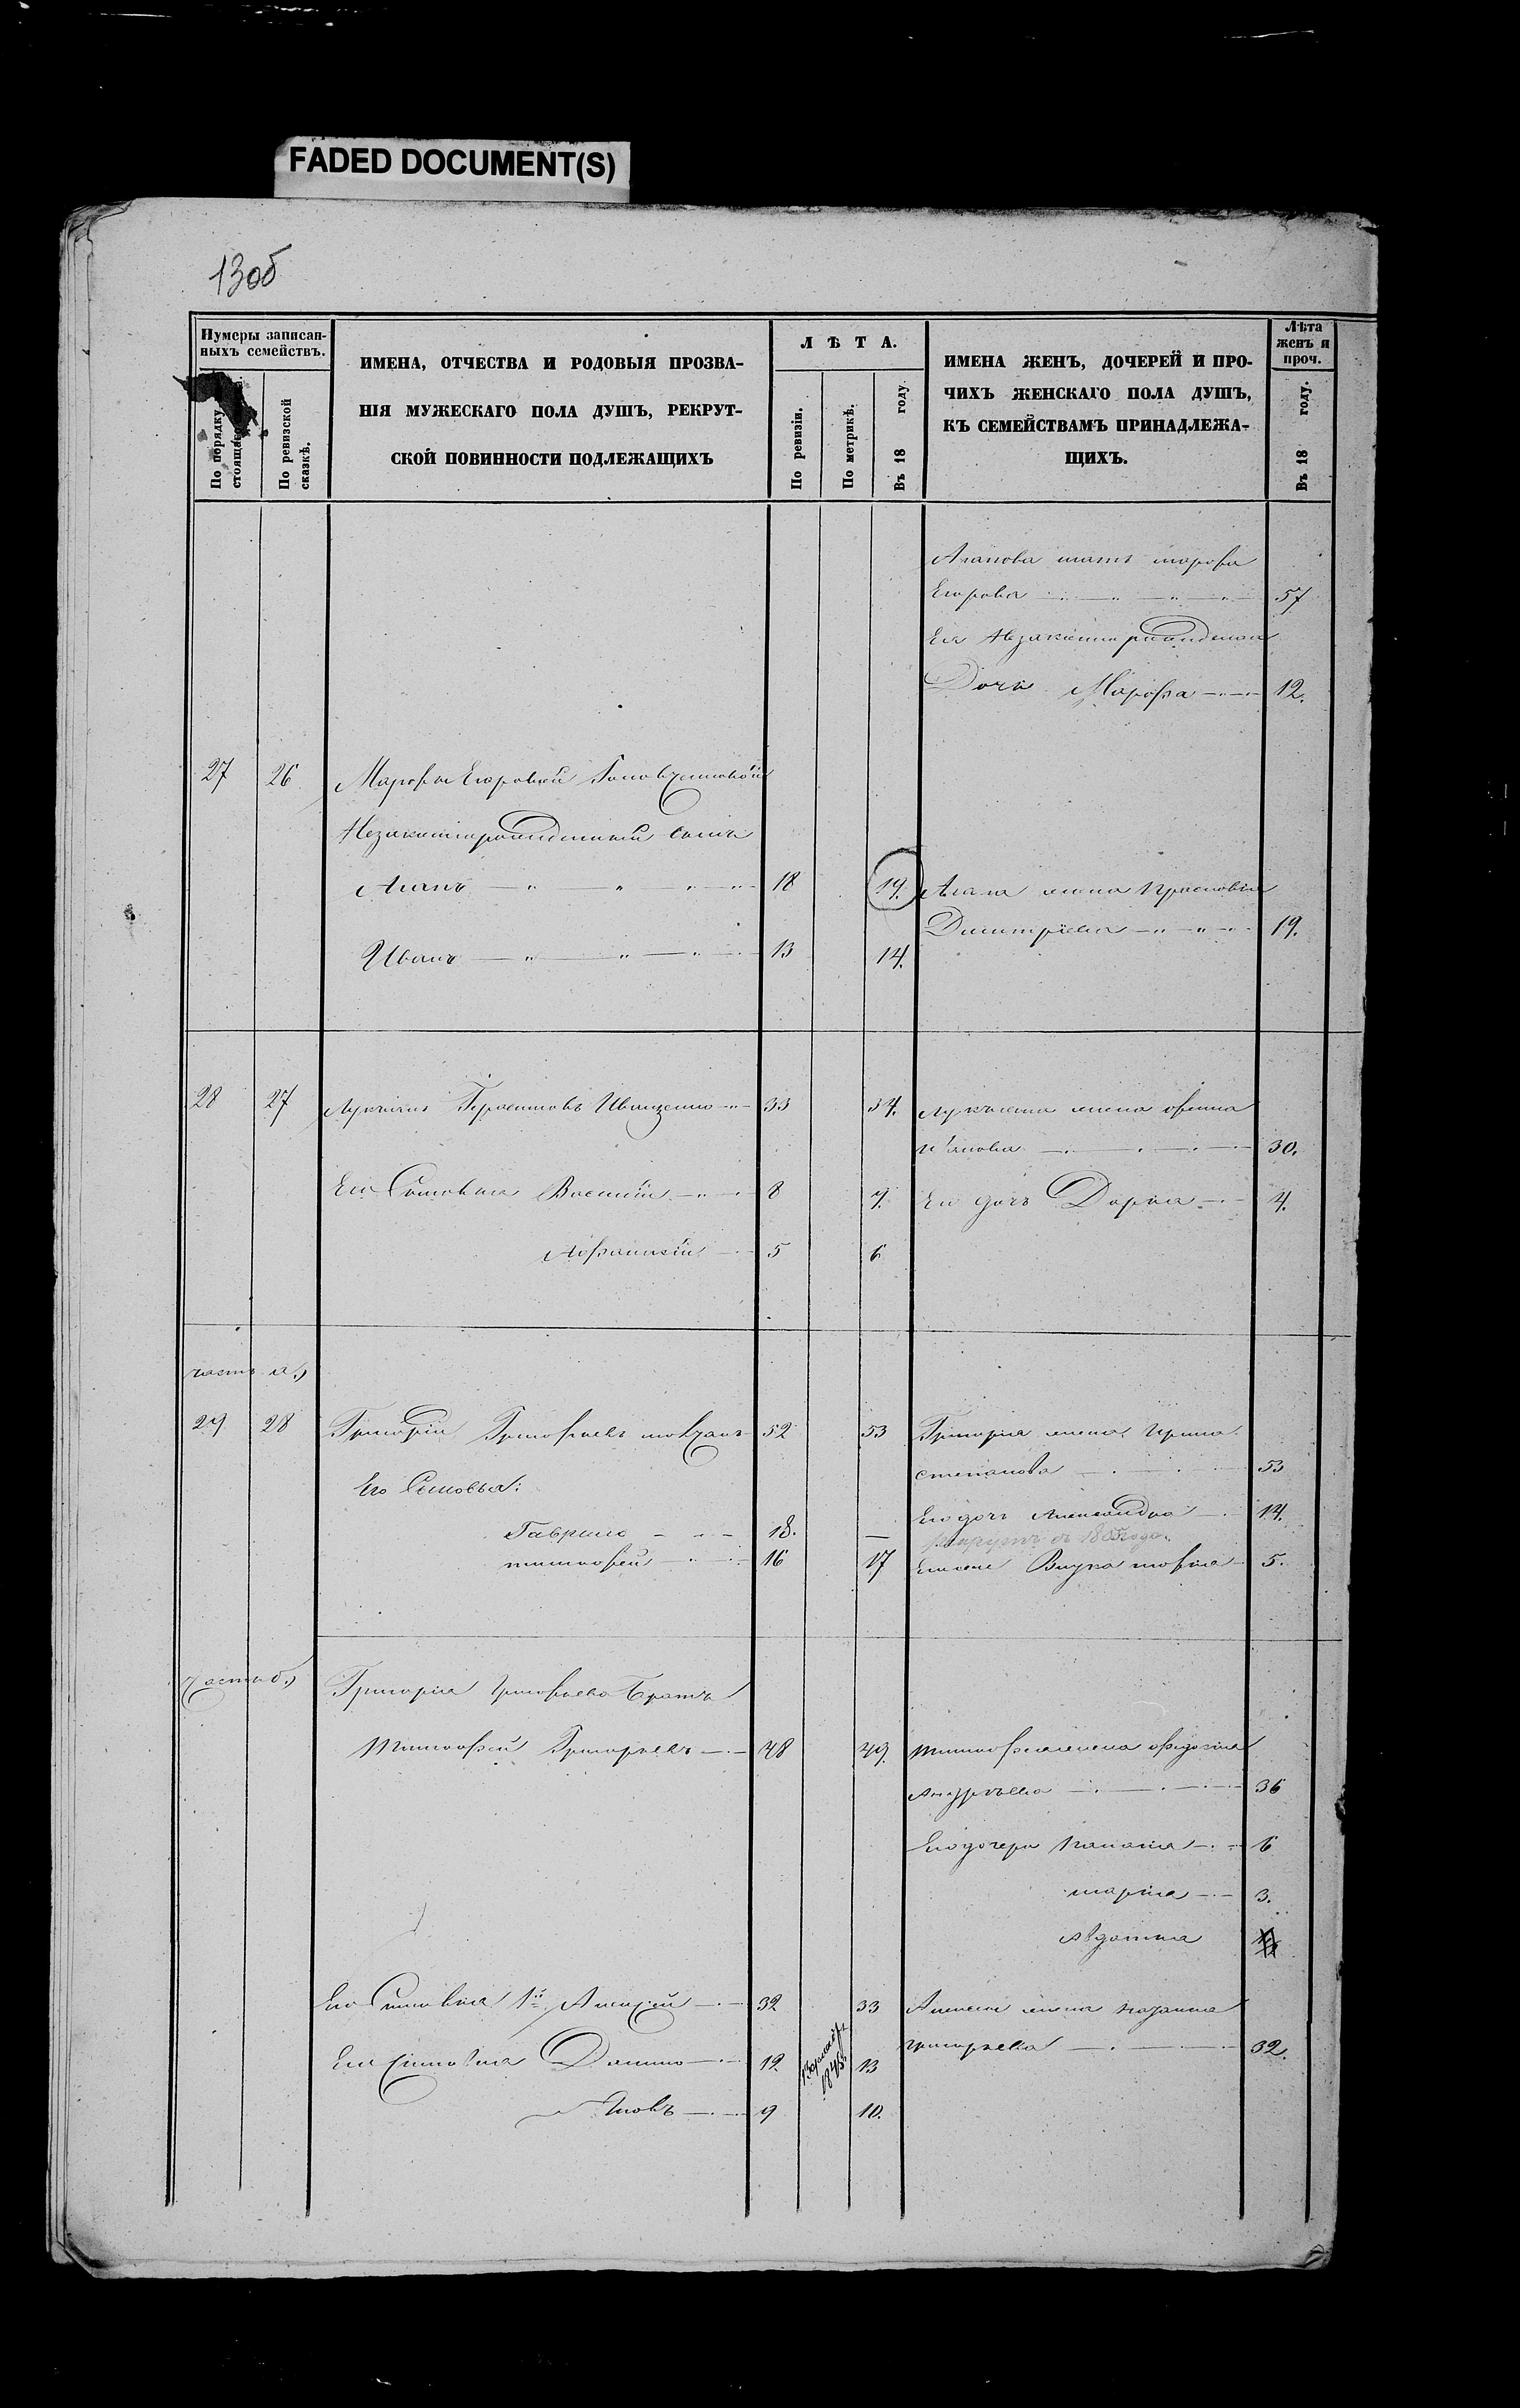 FADED DOCUMENT(S)
13об
Нумеры записан-
ныхъ семействъ.
По порядку
По ревизской
сказкѣ.
ИМЕНА, ОТЧЕСТВА И РОДОВЫЯ ПРОЗВА-
НІЯ МУЖЕСКАГО ПОЛА ДУШЪ, РЕКРУТ-
СКОЙ ПОВИННОСТИ ПОДЛЕЖАЩИХЪ
ЛѢТА.
По ревизіи.
По метрикѣ.
Въ 18 году.
ИМЕНА ЖЕНЪ, ДОЧЕРЕЙ И ПРО-
ЧИХЪ ЖЕНСКАГО ПОЛА ДУШЪ,
КЪ СЕМЕЙСТВАМЪ ПРИНАДЛЕЖА-
ЩИХЪ.
Лѣта
женъ и
проч.
Въ 18 году.
Агапова мать марфа
Егорова 57
Ея Незаконнорожденная
Дочь Марфа 12.
27 26 Марфы Егоровой
Незаконнорожденный сынъ
Агапъ 18 19. Агапа жена Прасковья
Дмитріева 19.
Иванъ 13 14.
28 27 33 34. жена
30.
Его Сыновья Василій 8 9. Его дочь Дарья 4.
Афанасій 5 6
часть а,)
29 28 Григорій 52 53 Григорія жена Ирина
степанова 53
Его Сыновья:
Его дочь Александра 14.
Гаврило 18. —
тимофей 16 17 Внука 5.
часть б,) Григорія братъ
Тимофей Григорьевъ 48 49 Тимофея жена
Андреева 36
Его дочери 6
марья 3.
Его Сыновья 1й Алексей 32 33 Алексея жена
григорьева 32.
Его Сыновья Данило 12 1845. 13
Яковъ 9 10.